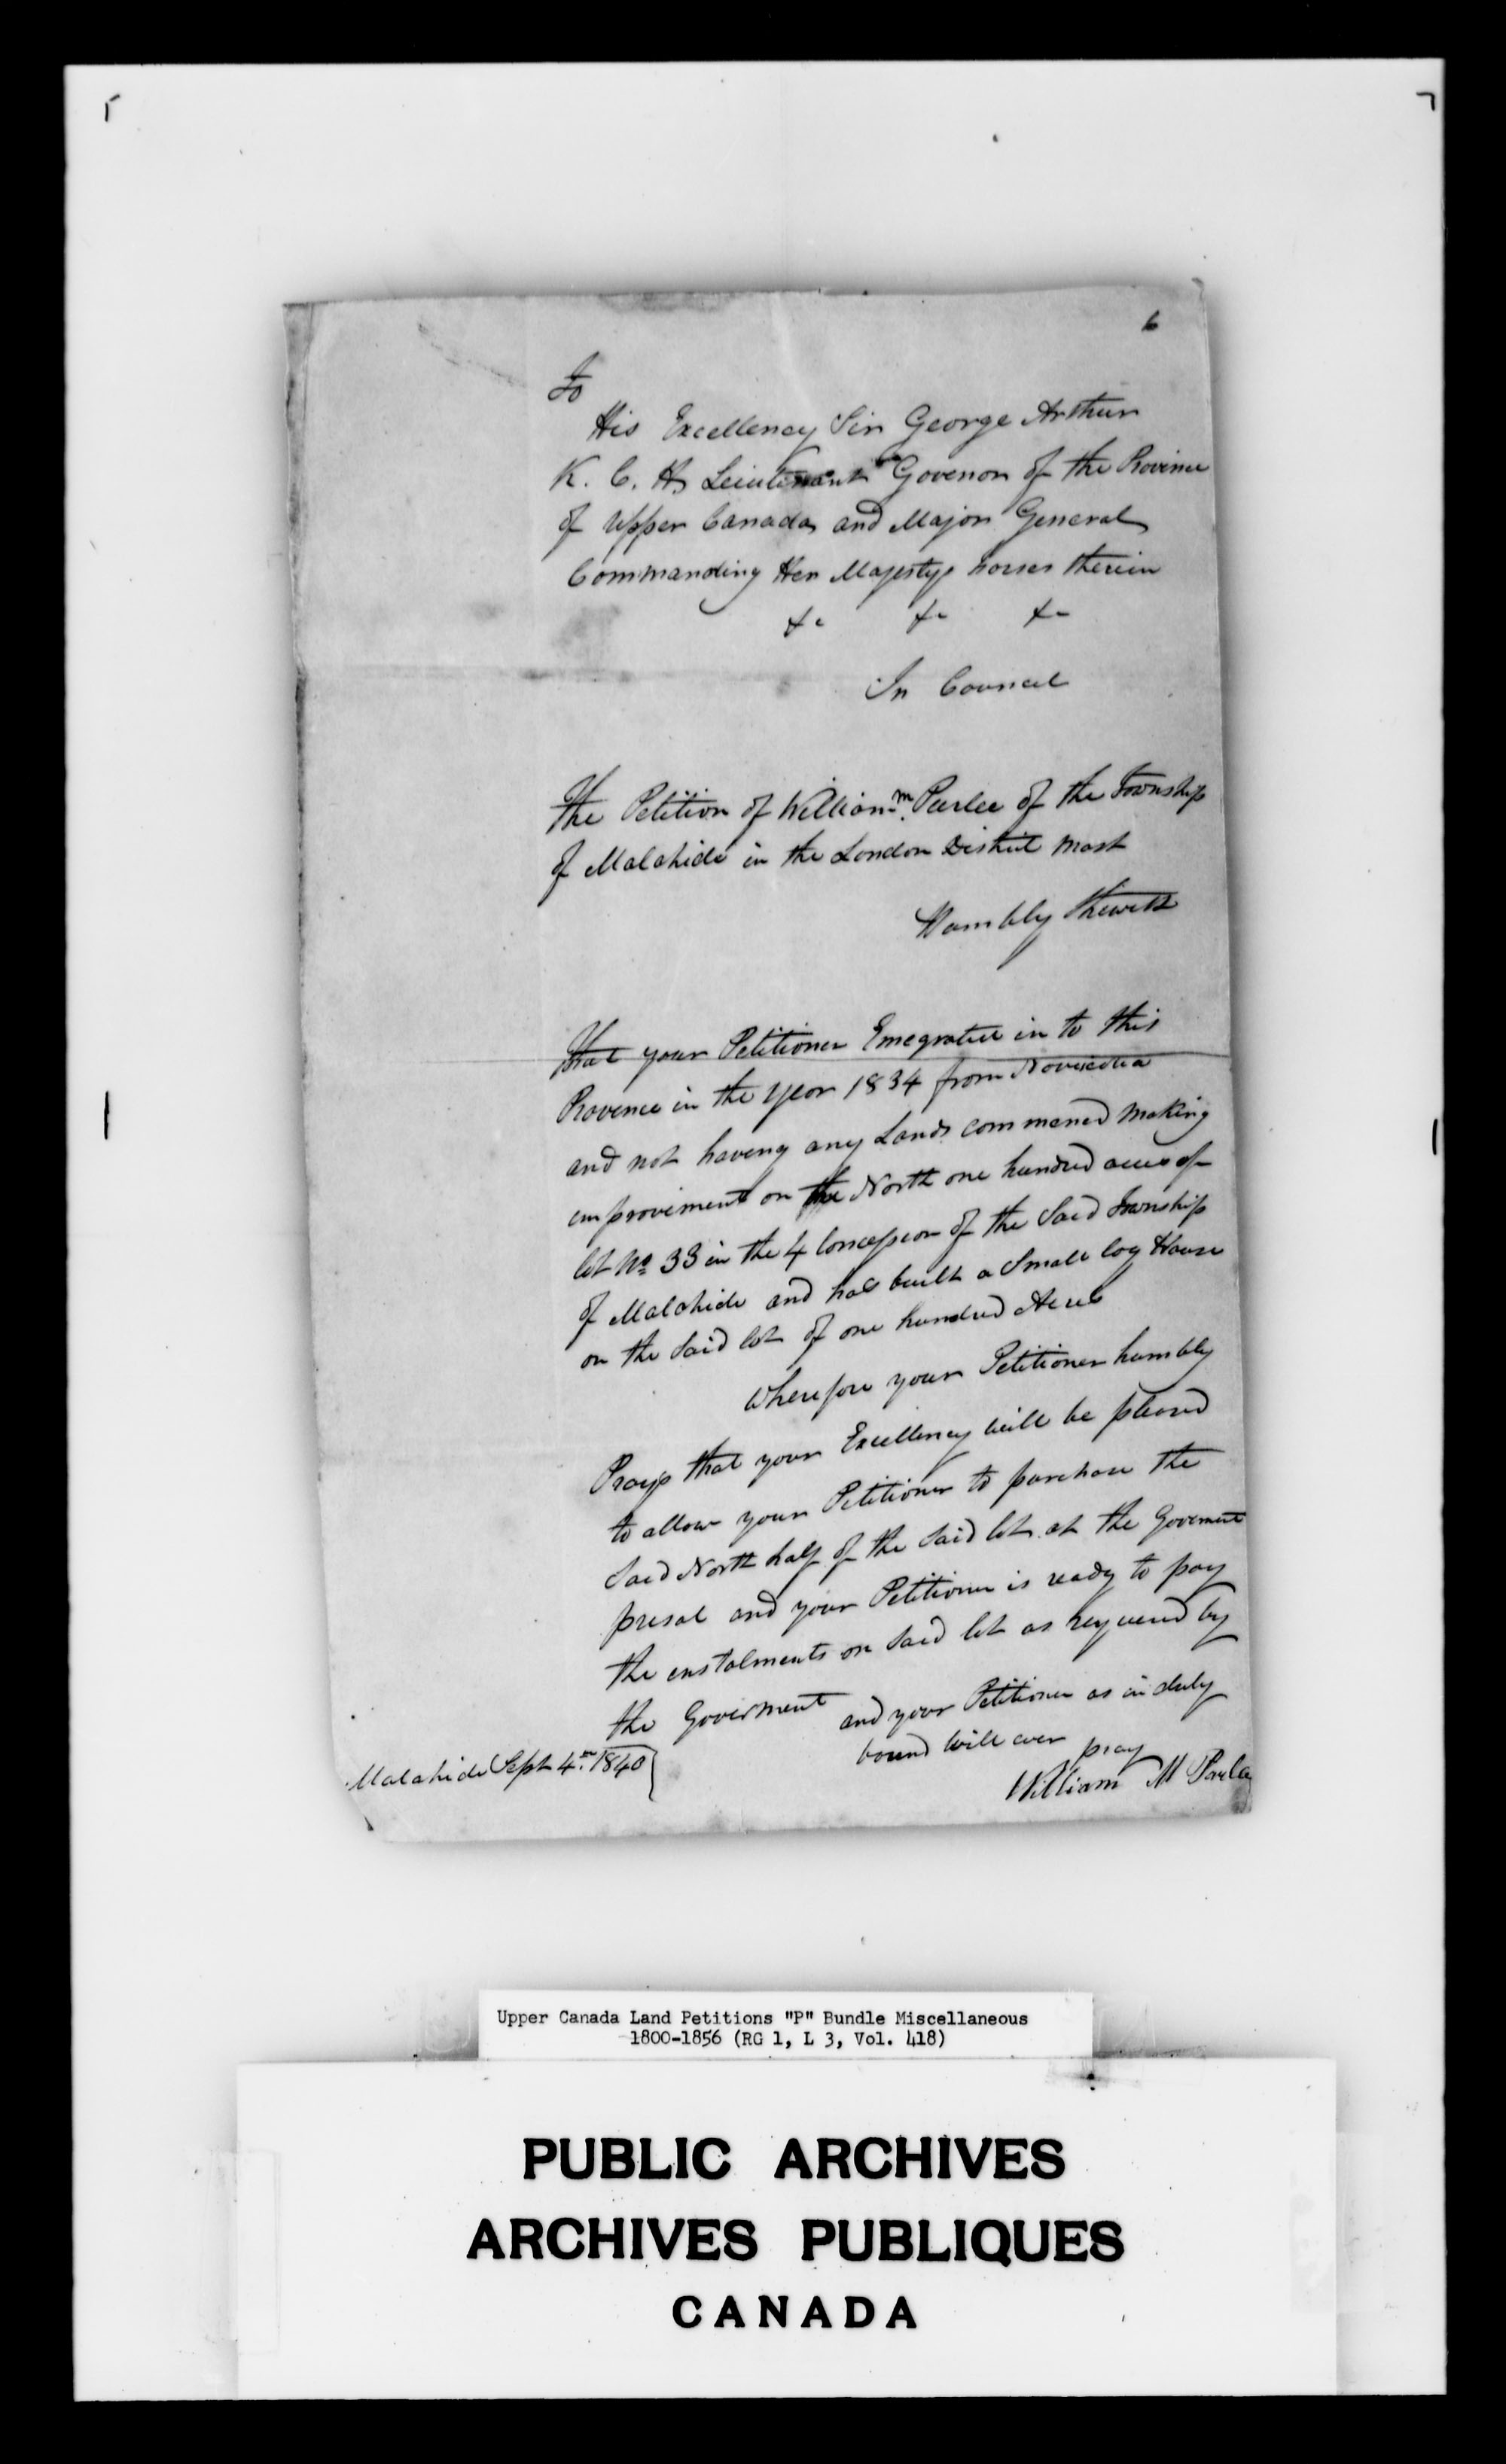 6
To
His Excellency Sir George Arthur
K. C. H. Leiutenant Govenor of the Province
of Upper Canada and Major General
Commanding Her Majestys forses therein
&c &c &c
In Council
The Petition of William M. Parlee of the Township
of Malahide in the London District most
Humbly Sheweth
That your Petitioner Emegrated in to this
Provence in the year 1834 from Novascotia
and not haveng any Lands commened making
emprovement on the North one hundred acres of
lot No 33 in the 4 Concession of the Said Township
of Malahide and has built a Small log House
on the Said lot of one hundred Acres
Wherefore your Petitioner humbly
Prays that your Excellency will be pleased
to allow your Petitioner to purchase the
Said North half of the Said lot at the Goverment
presal and your Petitioner is ready to pay
the enstalments on Said lot as requered by
the Goverment and your Petitioner as in duty
bound will ever pray
Malahide Sept 4th 1840
William M Parlee
Upper Canada Land Petitions "P" Bundle Miscellaneous
1800-1856 (RG 1, L 3, Vol. 418)
PUBLIC ARCHIVES
ARCHIVES PUBLIQUES
CANADA